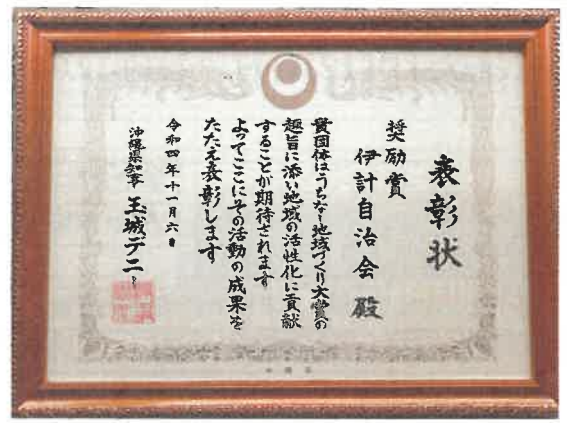 表彰状
奨励賞
伊計自治会 殿
貴団体はうちなー地域づくり大賞の
趣旨に添い地域の活性化に貢献
することが期待されます
よってここにその活動の成果を
たたえ表彰します
令和四年十一月六日
沖縄県知事 玉城デニー